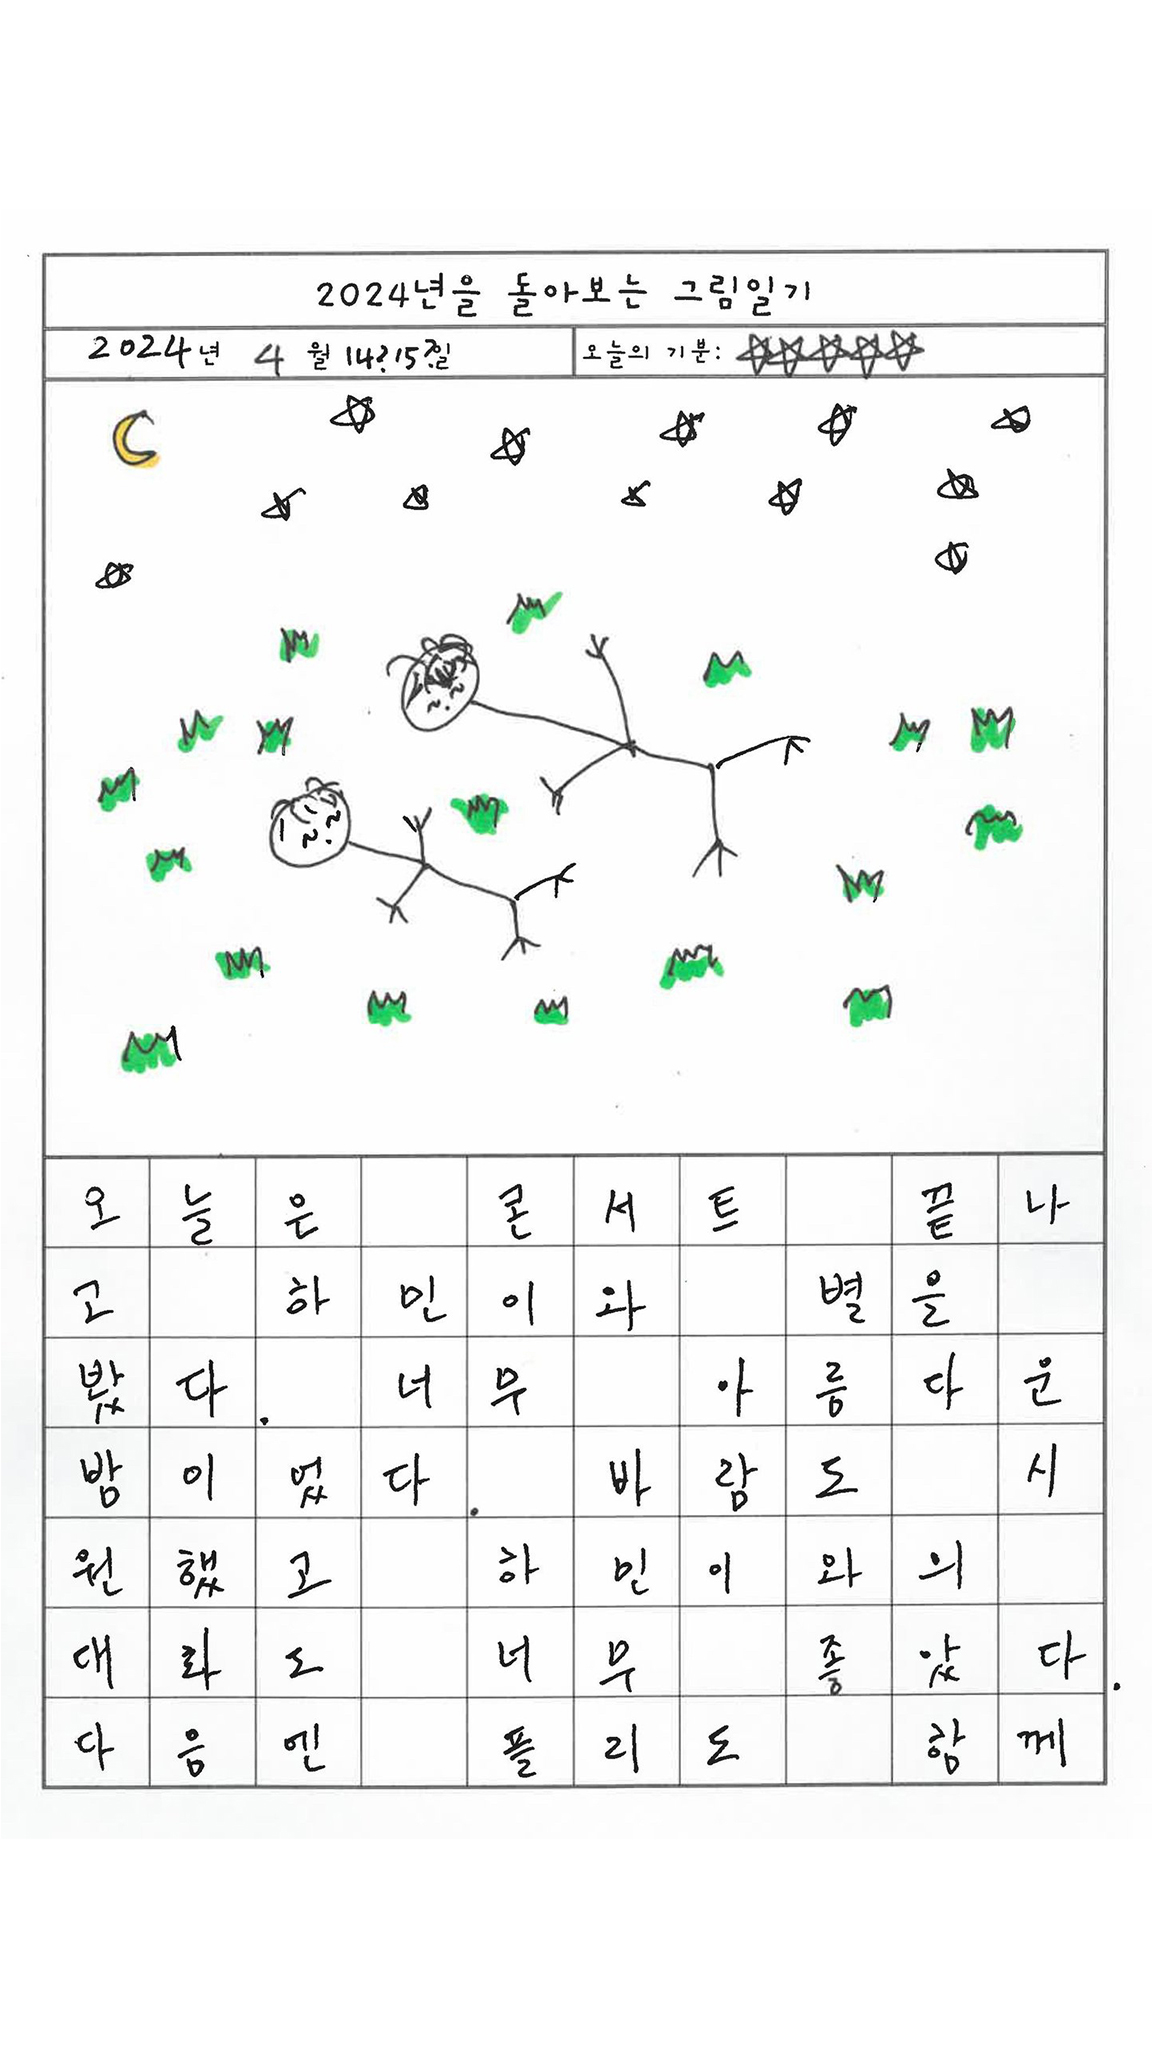 2024년을 돌아보는 그림일기
2024년 4월 14?15?일 오늘의 기분: ☆☆☆☆☆
오늘은 콘서트 끝나
고 하민이와 별을
봤다. 너무 아름다운
밤이었다. 바람도 시
원했고 하민이와의
대화도 너무 좋았다.
다음엔 플리도 함께